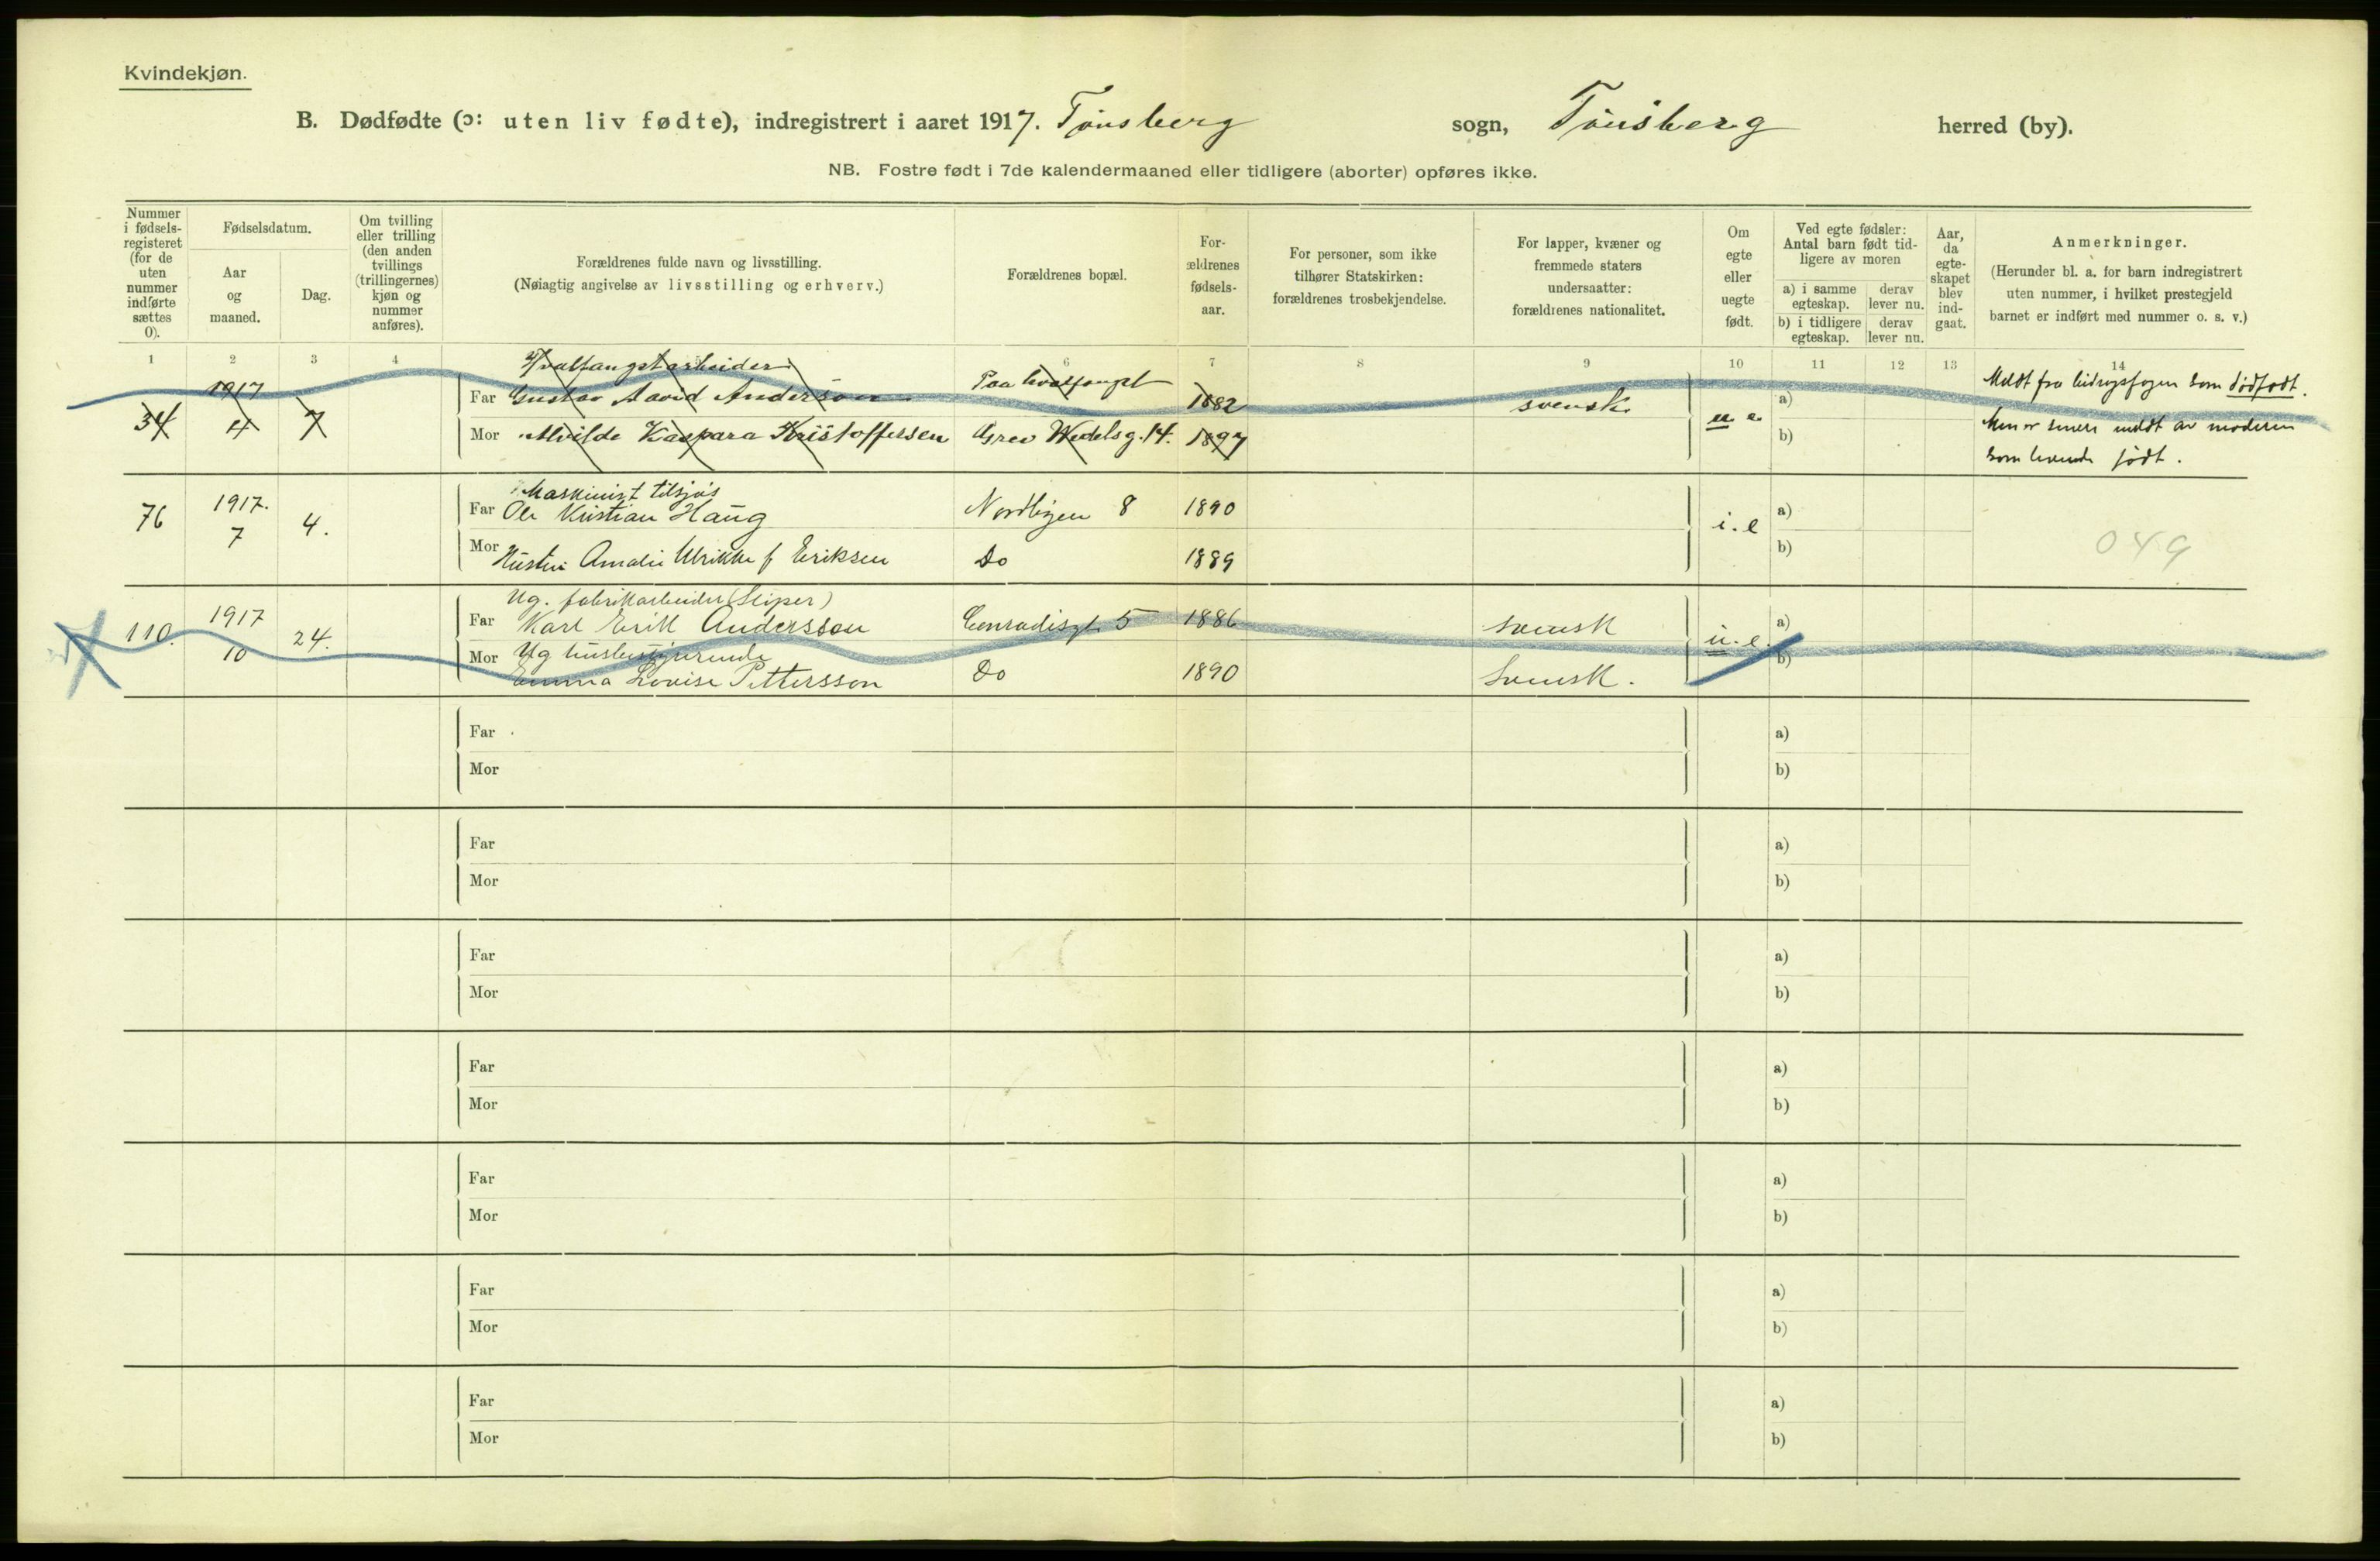 Kvindekjøn.
B. Dødfødte (ɔ: uten liv fødte), indregistrert i aaret 1917. Tønsberg sogn, Tønsberg herred (by).
NB. Fostre født i 7de kalendermaaned eller tidligere (aborter) opføres ikke.
Nummer
i fødsels-
registeret
(for de
uten
nummer
indførte
sættes
0).
Fødselsdatum.
Aar
og
maaned.
Dag.
Om tvilling
eller trilling
(den anden
tvillings
(trillingernes)
kjøn og
nummer
anføres).
Forældrenes fulde navn og livsstilling.
(Nøiagtig angivelse av livsstilling og erhverv.)
Forældrenes bopæl.
For-
ældrenes
fødsels-
aar.
For personer, som ikke
tilhører Statskirken:
forældrenes trosbekjendelse.
For lapper, kvæner og
fremmede staters
undersaatter:
forældrenes nationalitet.
Om
egte
eller
uegte
født.
Ved egte fødsler:
Antal barn født tid-
ligere av moren
a) i samme
egteskap.
derav
lever nu.
b) i tidligere
egteskap.
derav
lever nu.
Aar,
da
egte-
skapet
blev
ind-
gaat.
Anmerkninger.
(Herunder bl. a. for barn indregistrert
uten nummer, i hvilket prestegjeld
barnet er indført med nummer o. s. v.)
1 2 3 4 6 7 8 9 10 11 12 13 14
Hvalfangstarbeider
34 1917 4 7
Far Gustav David Anderson Paa hvalfangst 1882 svensk u. e. a)
Mor Alvilde Kaspara Kristoffersen Grev Wedelsg. 14. 1897 b)
Meldt fra bidragsfogen som dødfødt.
Men er senere meldt av moderen
som levende født.
76 1917. 7 4.
Maskinist tilsjøs
Far Ole Kristian Haug Nordbyen 8 1890 i. e a)
Mor Hustru Amalie Ulrikke f Eriksen Do 1889 b)
049
110. 1917 10 24.
Ug. fabrikarbeider (Sliper)
Far Karl Erik Andersson Conradisgt. 5 1886 svensk u. e. a)
Mor Ug husbestyrerinde
Emma Lovise Pettersson Do 1890 Svensk. b)
Far a)
Mor b)
Far a)
Mor b)
Far a)
Mor b)
Far a)
Mor b)
Far a)
Mor b)
Far a)
Mor b)
Far a)
Mor b)